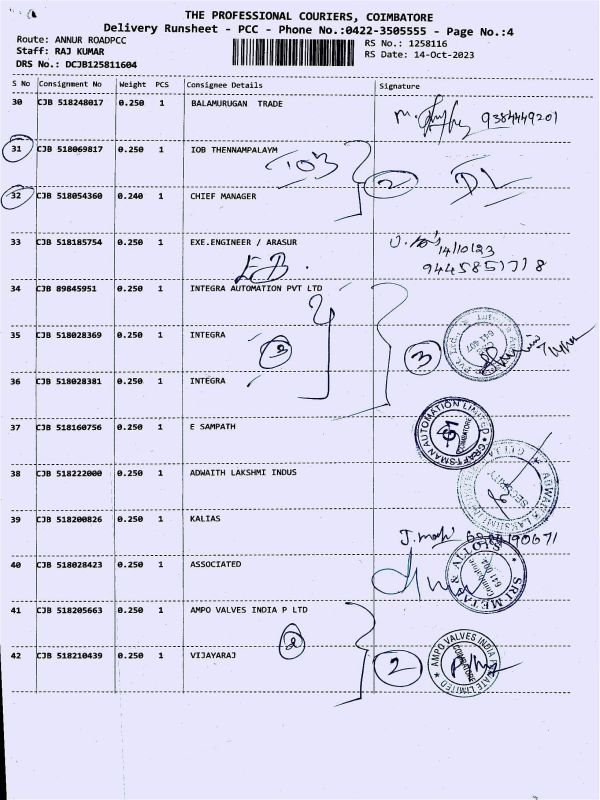 THE PROFESSIONAL COURIERS, COIMBATORE
Delivery Runsheet - PCC - Phone No.:0422-3505555 - Page No.:4
Route: ANNUR ROADPCC RS No.: 1258116
Staff: RAJ KUMAR RS Date: 14-Oct-2023
DRS No.: DCJB125811604
S No Consignment No Weight PCS Consignee Details Signature
30 CJB 518248017 0.250 1 BALAMURUGAN TRADE 9384449201
31 CJB 518069817 0.250 1 IOB THENNAMPALAYM
IOB 2
32 CJB 518054360 0.240 1 CHIEF MANAGER
33 CJB 518185754 0.250 1 EXE.ENGINEER / ARASUR
14/10/23
EB
34 CJB 89845951 0.250 1 INTEGRA AUTOMATION PVT LTD
35 CJB 518028369 0.250 1 INTEGRA
3 3
36 CJB 518028381 0.250 1 INTEGRA
37 CJB 518160756 0.250 1 E SAMPATH
CRAFTSMAN AUTOMATION LIMITED
COIMBATORE
38 CJB 518222000 0.250 1 ADWAITH LAKSHMI INDUS
SECURITY
39 CJB 518200826 0.250 1 KALIAS
40 CJB 518028423 0.250 1 ASSOCIATED
SRI METAL & ALLOYS
Coimbatore
41 CJB 518205663 0.250 1 AMPO VALVES INDIA P LTD
2
42 CJB 518210439 0.250 1 VIJAYARAJ 2
AMPO VALVES INDIA PRIVATE LIMITED
COIMBATORE